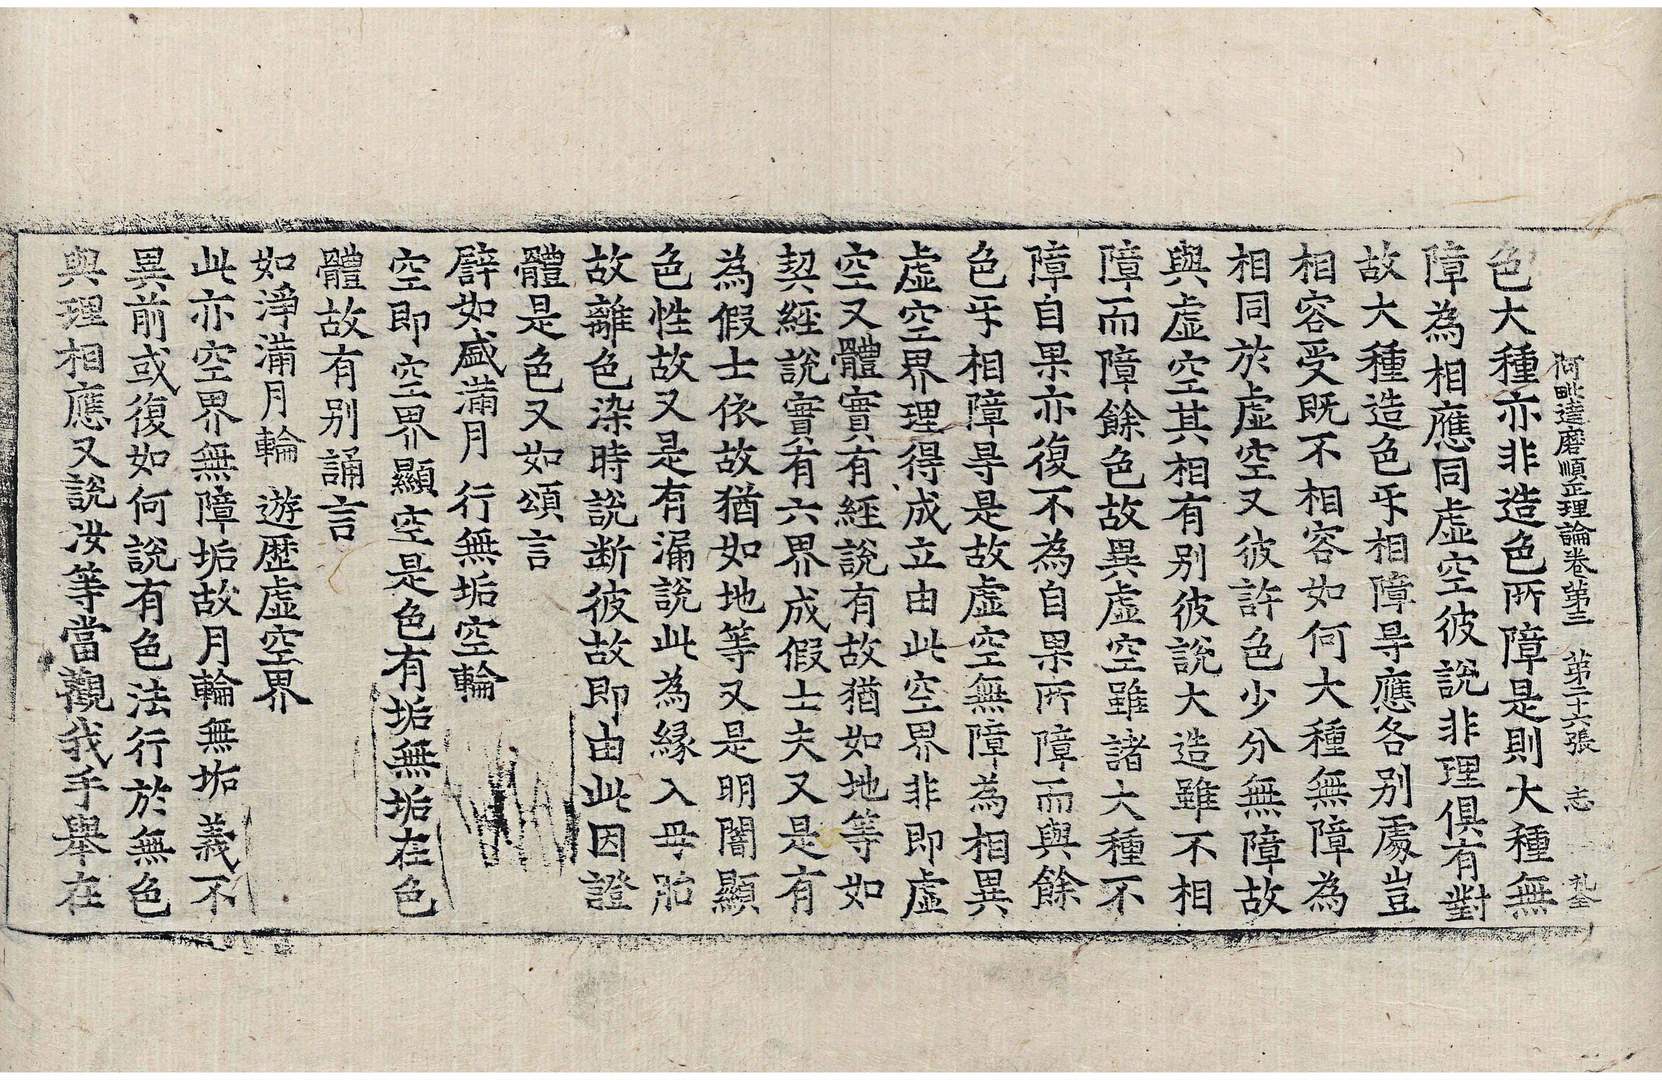 阿毗達磨順正理論卷第三　第二十六張　志
色大種亦非造色所障是則大種無
障為相應同虛空彼說非理俱有對
故大種造色𠀕相障㝵應各別處豈
相容受既不相容如何大種無障為
相同於虛空又彼許色少分無障故
與虛空其相有別彼說大造雖不相
障而障餘色故異虛空雖諸大種不
障自果亦復不為自果所障而與餘
色𠀕相障㝵是故虛空無障為相異
虛空界理得成立由此空界非即虛
空又體實有經說有故猶如地等如
契經說實有六界成假士夫又是有
為假士依故猶如地等又是明闇顯
色性故又是有漏說此為緣入母胎
故離色染時說断彼故即由此因證
體是色又如頌言
譬如盛滿月　行無垢空輪
空即空界顯空是色有垢無垢在色
體故有別誦言
如淨滿月輪　遊歷虛空界
此亦空界無障垢故月輪無垢義不
異前或復如何說有色法行於無色
與理相應又說汝等當觀我手舉在